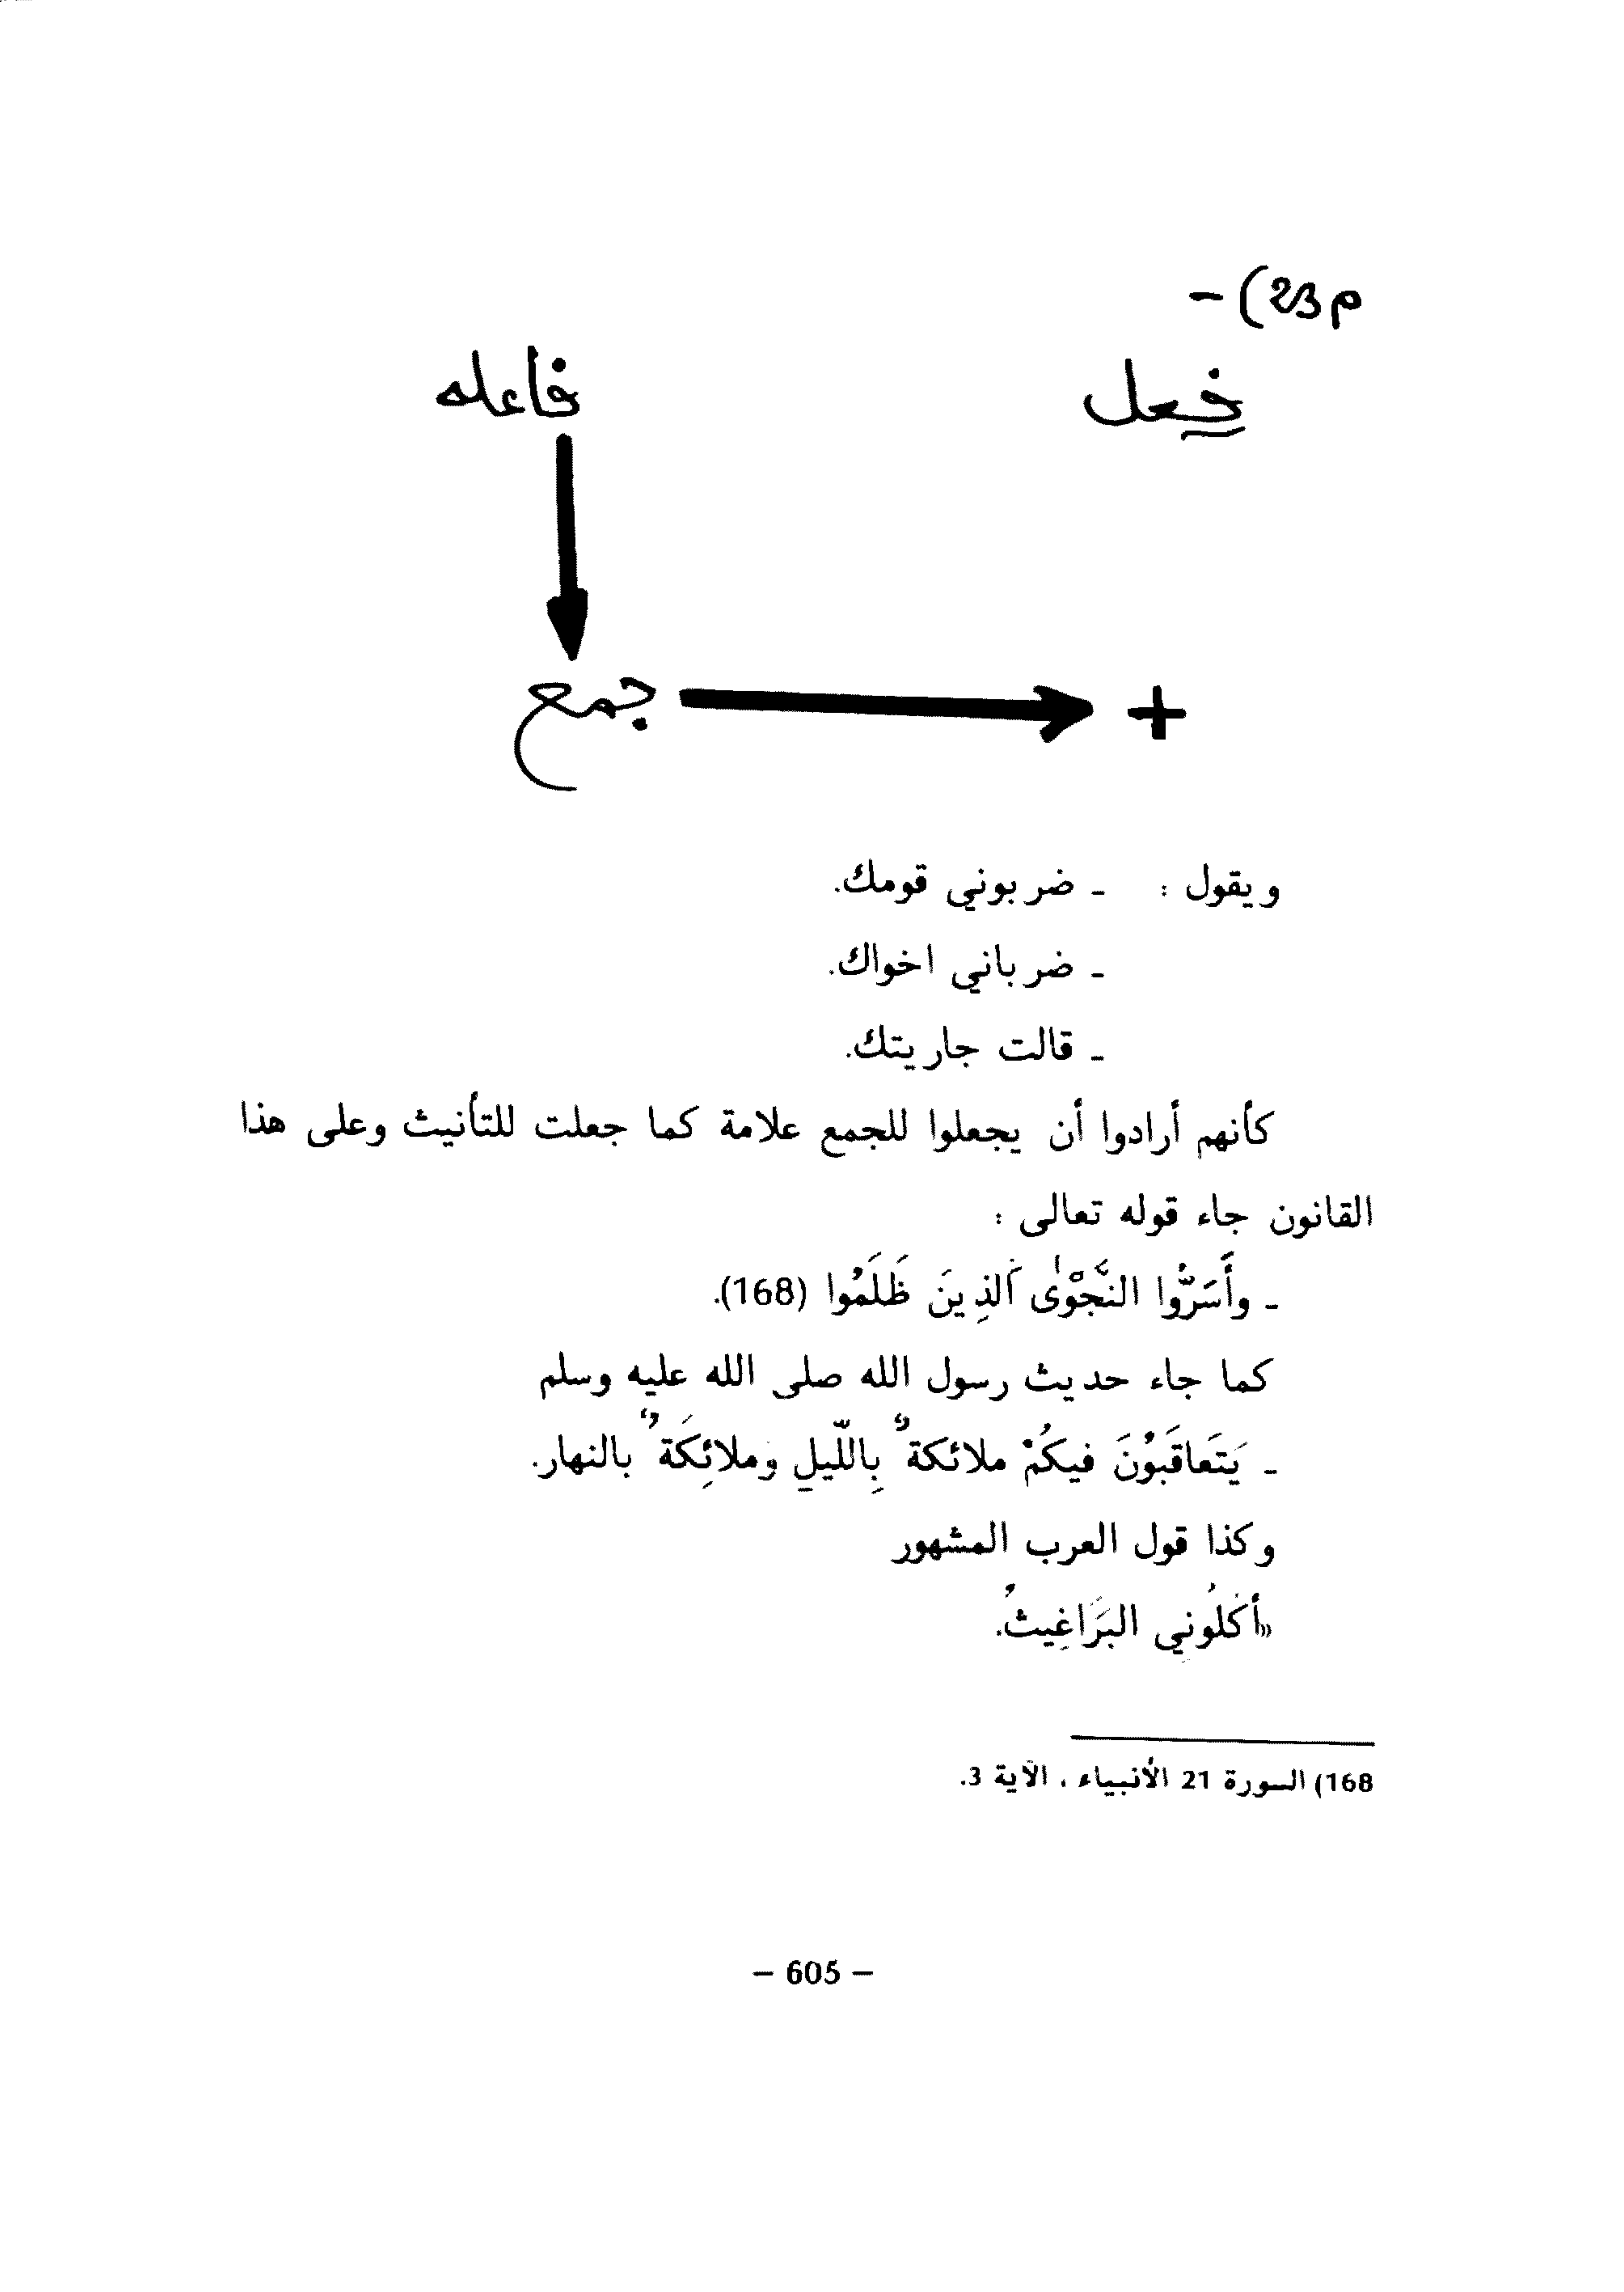 م23) -
فعل فاعله
+ جمع
ويقول : ـ ضربوني قومك.
ـ ضرباني اخواك.
ـ قالت جاريتك.
كأنهم أرادوا أن يجعلوا للجمع علامة كما جعلت للتأنيث وعلى هذا
القانون جاء قوله تعالى :
ـ وأَسَرُّوا النَّجْوٰى اَلذِينَ ظَلَمُوا (168).
كما جاء حديث رسول الله صلى الله عليه وسلم
ـ يَتَعاقَبُونَ فيكُمْ ملائكةٌ بِاللّيلِ وَملائِكَةٌ بالنهار.
وكذا قول العرب المشهور
«أكَلُونِي البَرَاغِيثُ.
168) السورة 21 الأنبياء ، الآية 3.
– 605 –